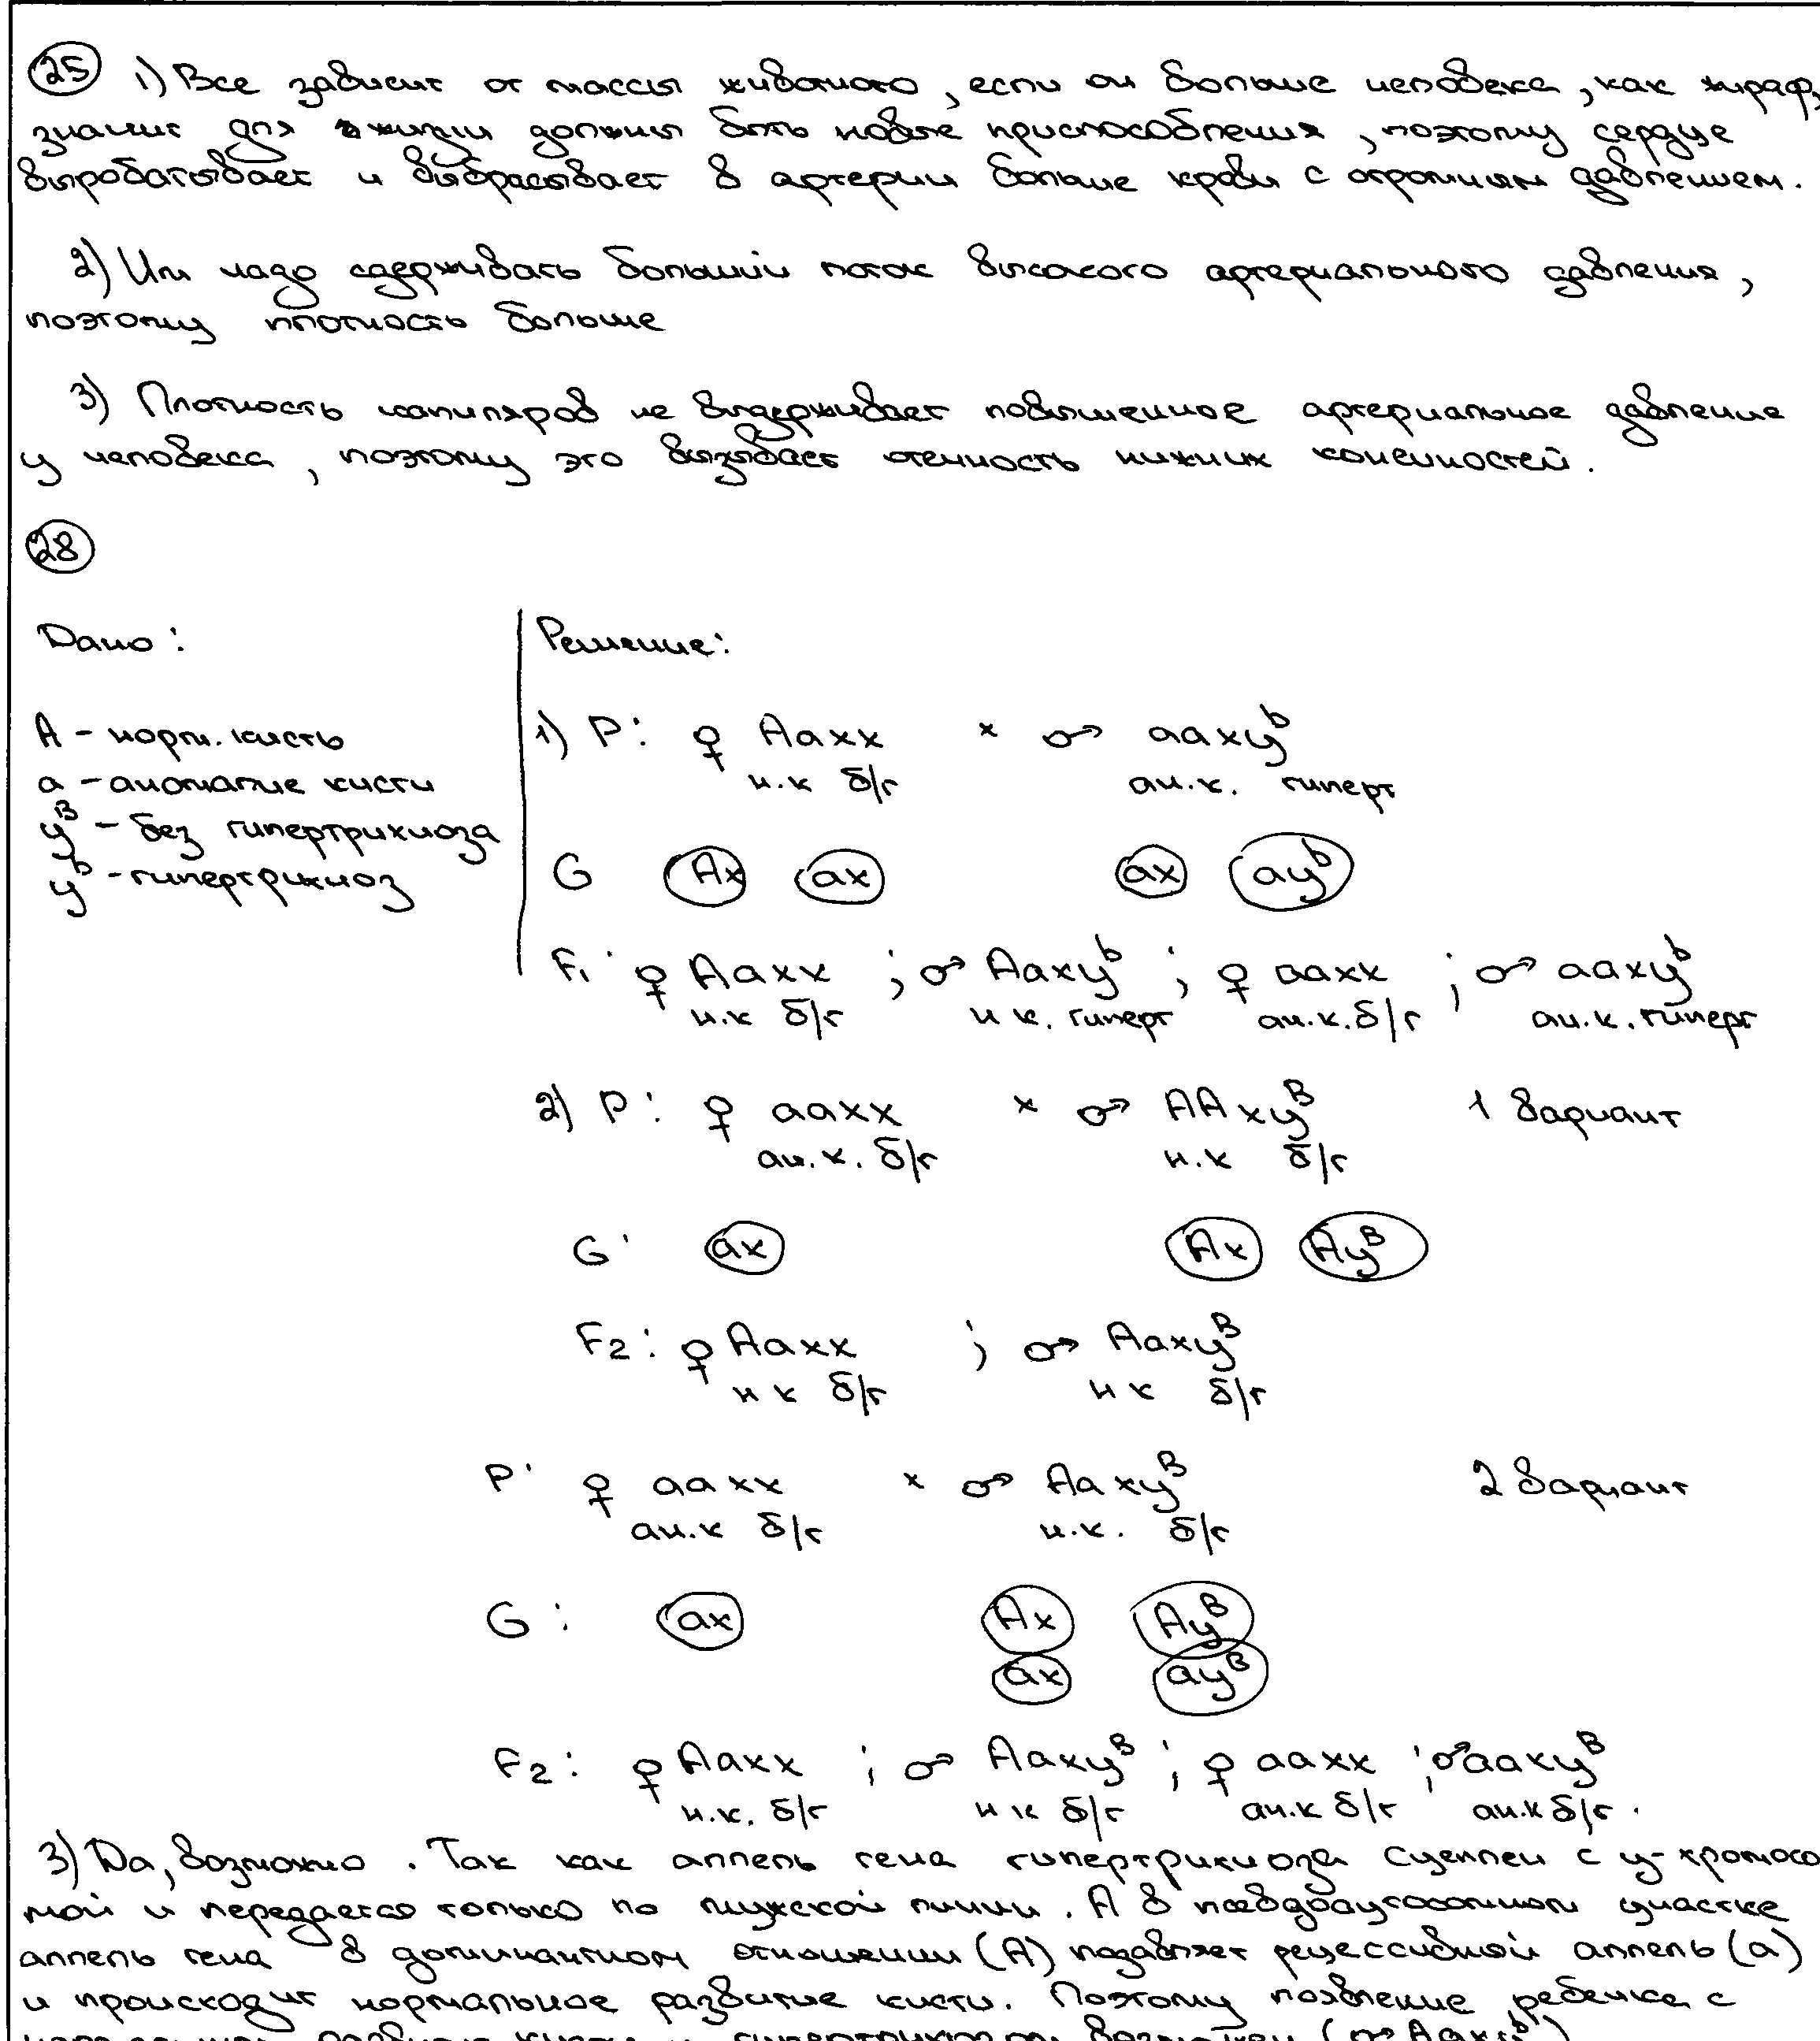 25 1) Все зависит от массы животного, если он больше человека, как жираф,
значит для жизни должны быть новые приспособления, поэтому сердце
выробатывает и выбрасывает в артерии больше крови с огромным давлением.
2) Им надо сдерживать больший поток высокого артериального давления,
поэтому плотность больше
3) Плотность капиляров не выдерживает повышенное артериальное давление
у человека, поэтому это вызывает отечность нижних конечностей.
28
Дано: Решение:
A - норм. кисть
a - аномалие кисти
y^B - без гипертрихиоза
y^b - гипертрихиоз
1) P: ♀ Aaxx × ♂ aaxy^b
н.к б/г ан.к. гиперт
G Ax ax ax ay^b
F1: ♀ Aaxx ; ♂ Aaxy^b ; ♀ aaxx ; ♂ aaxy^b
н.к б/г н к. гиперт ан.к. б/г ан.к. гиперт
2) P: ♀ aaxx × ♂ AAxy^B 1 вариант
ан.к. б/г н.к б/г
G: ax Ax Ay^B
F2: ♀ Aaxx ; ♂ Aaxy^B
н к б/г н к б/г
P: ♀ aaxx × ♂ Aaxy^B 2 вариант
ан.к б/г н.к. б/г
G: ax Ax Ay^B
ax ay^B
F2: ♀ Aaxx ; ♂ Aaxy^B ; ♀ aaxx ; ♂ aaxy^B
н.к. б/г н к б/г ан.к б/г ан.к б/г.
3) Да, возможно. Так как аллель гена гипертрихиоза сцеплен с y-хромосо
мой и передается только по мужской линии. А в псевдоаутосомном участке
аллель гена в доминантном отношении (A) подавляет рецессивной аллель (a)
и происходит нормальное развитие кисти. Поэтому появление ребенка с
развит кисти и возможен (♂ Aaxy^b)